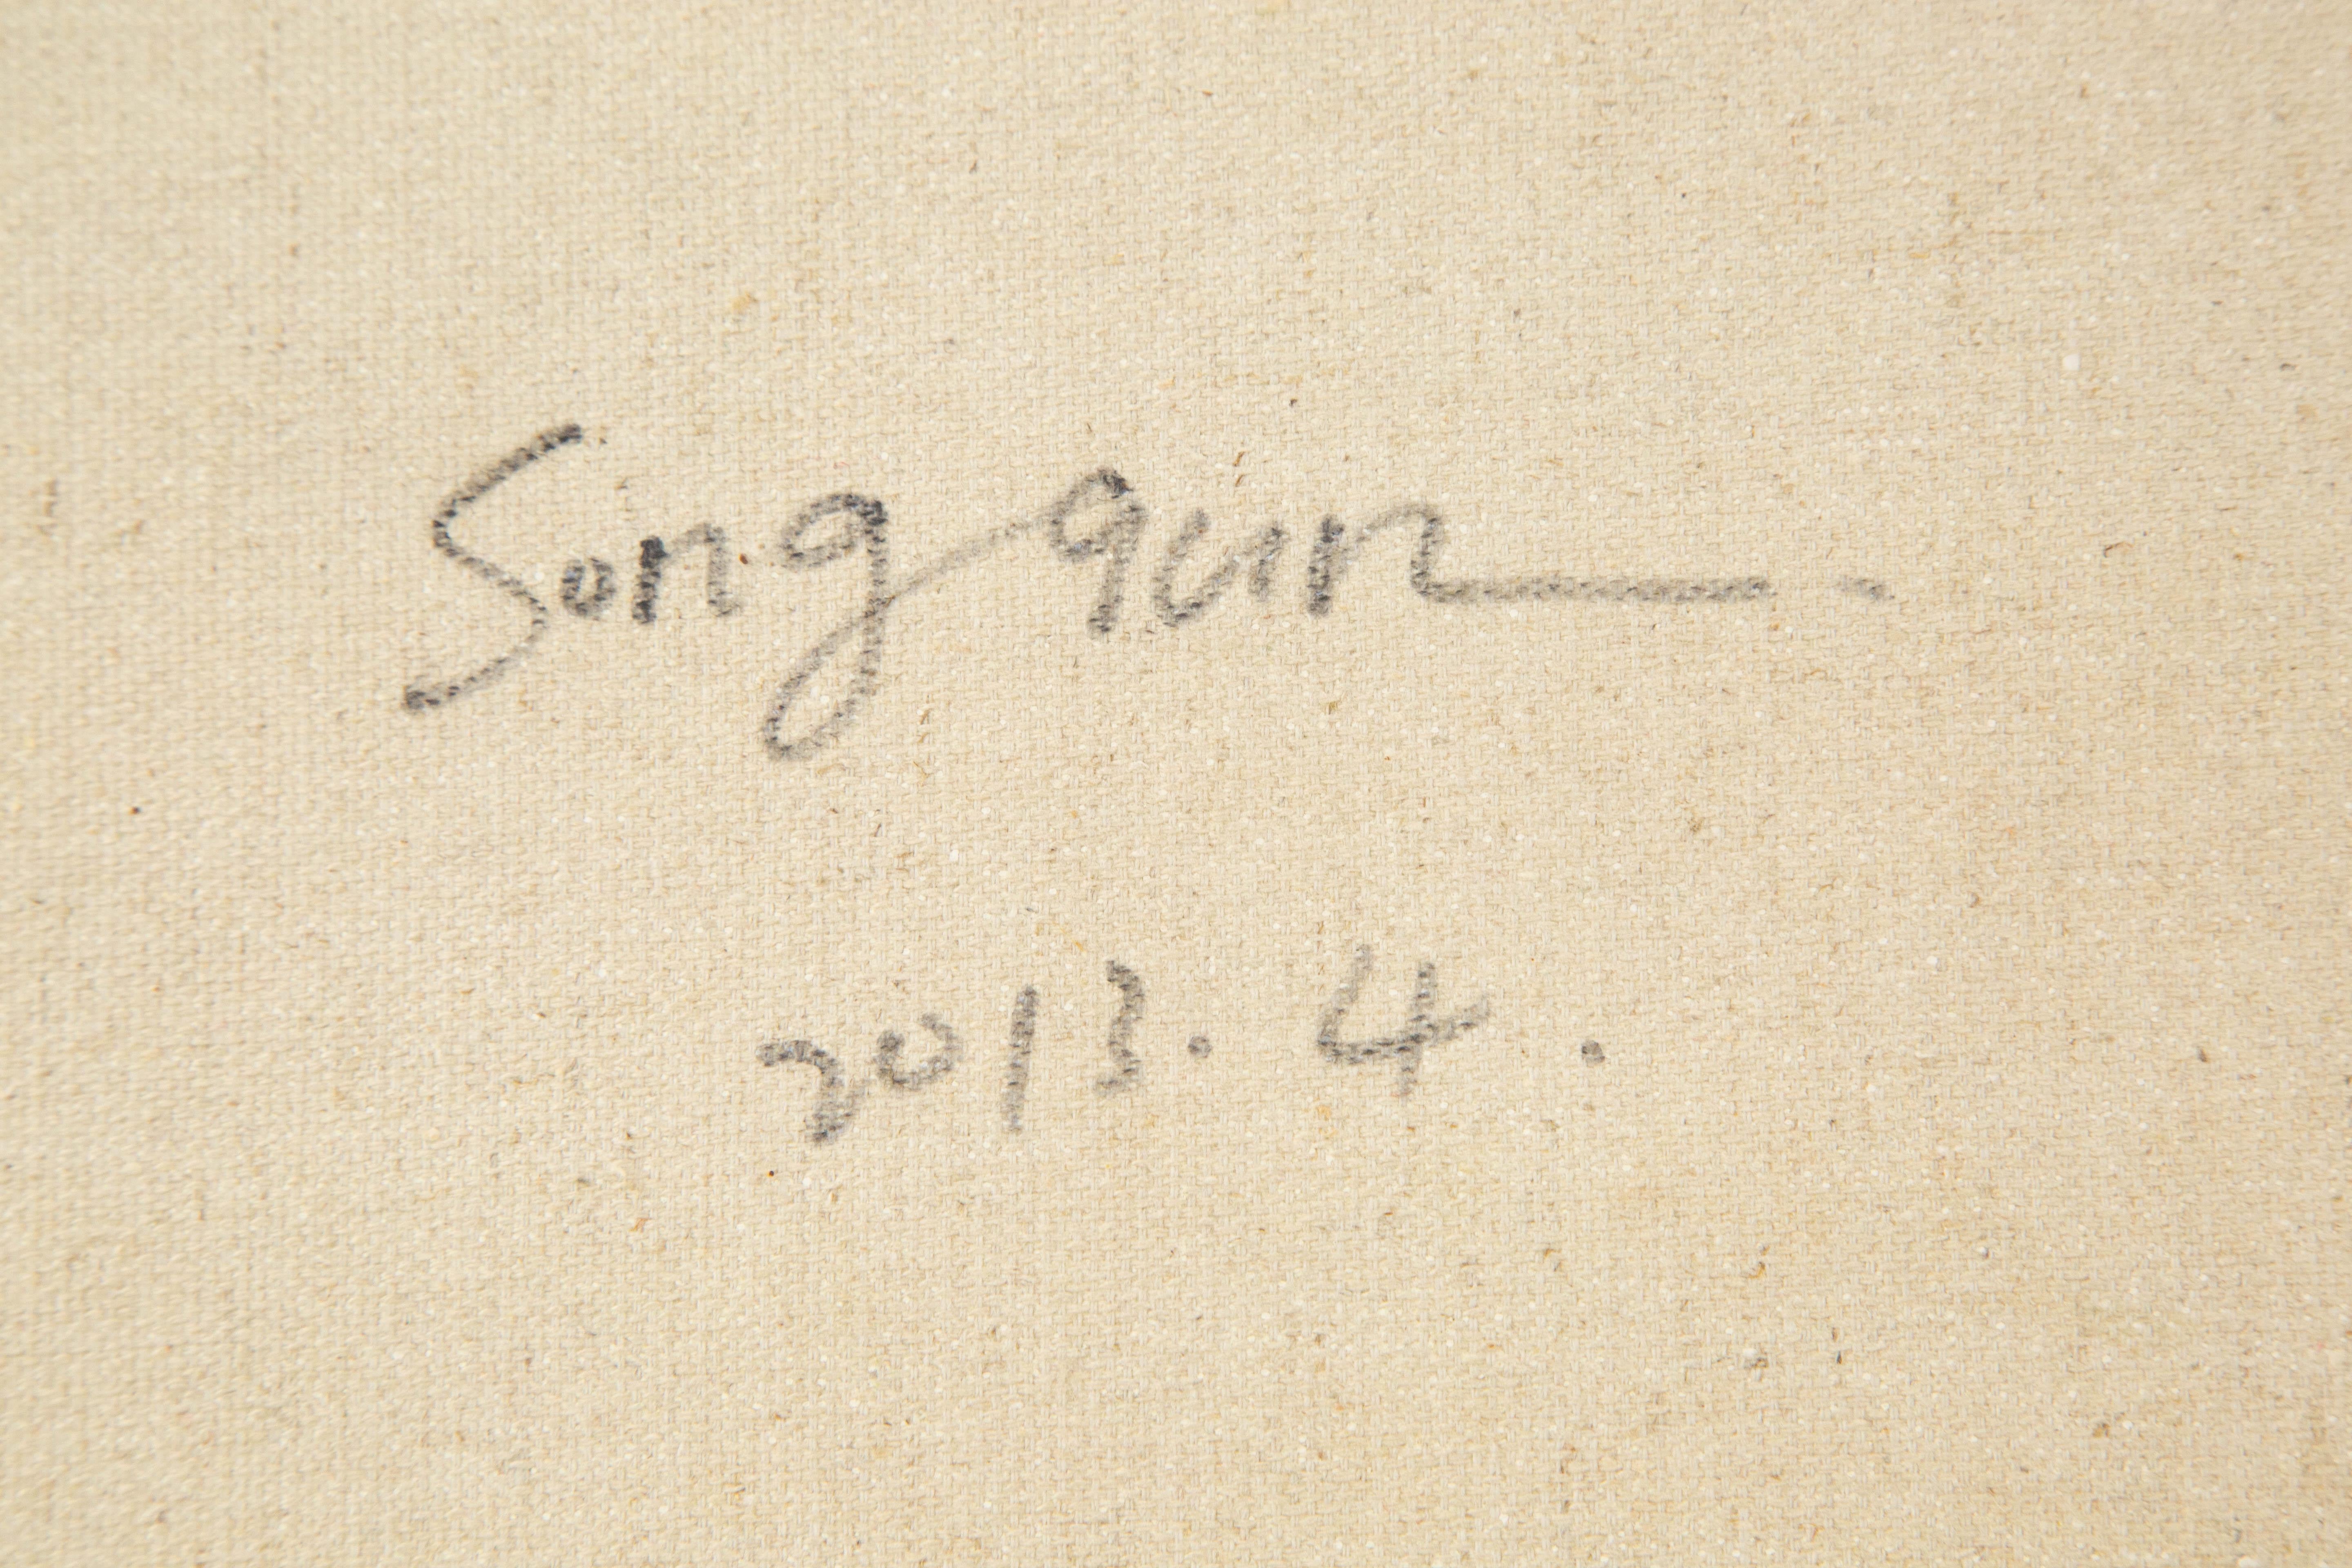 Song qun
2013.4.